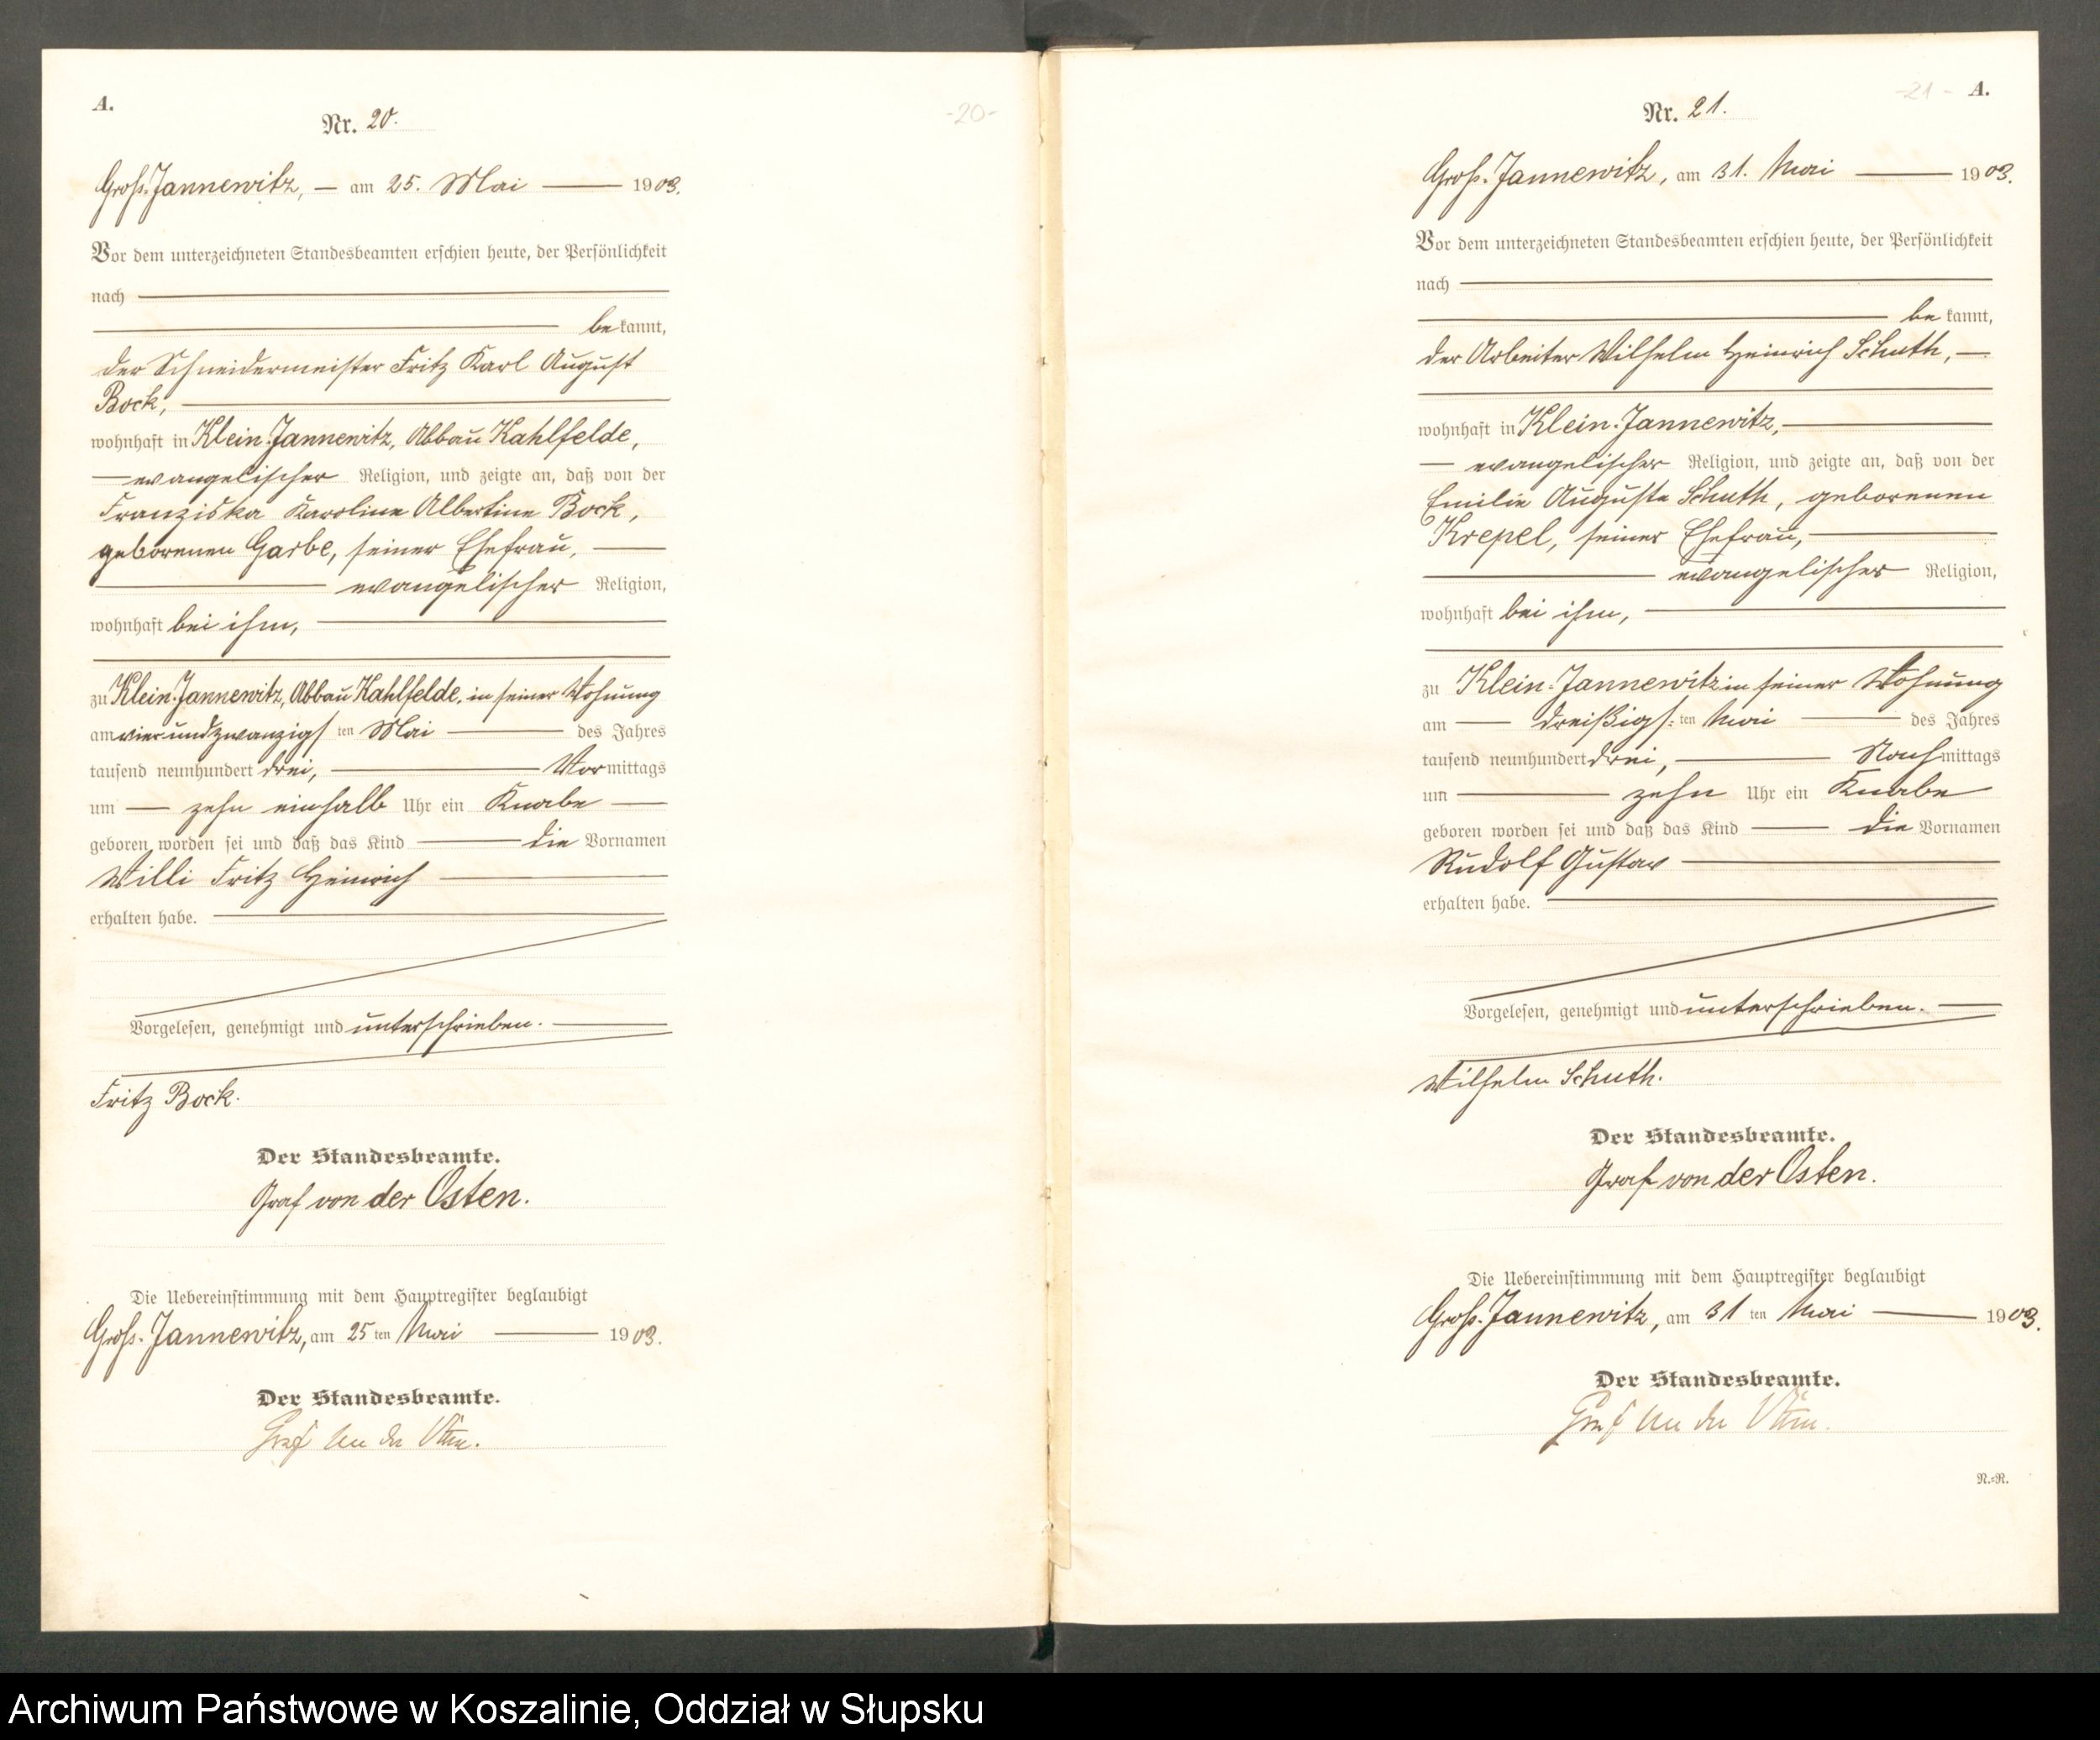 A.
Nr. 20.
-20-
Groß-Jannewitz, — am 25. Mai — 1903.
Vor dem unterzeichneten Standesbeamten erschien heute, der Persönlichkeit
nach
bekannt,
der Schneidermeister Fritz Karl August
Bock,
wohnhaft in Klein-Jannewitz, Abbau Kahlfelde,
evangelischer Religion, und zeigte an, daß von der
Franziska Karoline Albertine Bock,
geborenen Garbe, seiner Ehefrau,
evangelischer Religion,
wohnhaft bei ihm,
zu Klein-Jannewitz, Abbau Kahlfelde, in seiner Wohnung
am vierundzwanzigsten Mai des Jahres
tausend neunhundert drei, Vormittags
um zehn einhalb Uhr ein Knabe
geboren worden sei und daß das Kind die Vornamen
Willi Fritz Heinrich
erhalten habe.
Vorgelesen, genehmigt und unterschrieben.
Fritz Bock.
Der Standesbeamte.
Graf von der Osten.
Die Uebereinstimmung mit dem Hauptregister beglaubigt
Groß-Jannewitz, am 25ten Mai 1903.
Der Standesbeamte.
Graf von der Osten.
-21- A.
Nr. 21.
Groß-Jannewitz, am 31. Mai 1903.
Vor dem unterzeichneten Standesbeamten erschien heute, der Persönlichkeit
nach
bekannt,
der Arbeiter Wilhelm Heinrich Schuth,
wohnhaft in Klein-Jannewitz,
evangelischer Religion, und zeigte an, daß von der
Emilie Auguste Schuth, geborenen
Krepel, seiner Ehefrau,
evangelischer Religion,
wohnhaft bei ihm,
zu Klein-Jannewitz in seiner Wohnung
am dreißigsten Mai des Jahres
tausend neunhundert drei, Nachmittags
um zehn Uhr ein Knabe
geboren worden sei und daß das Kind die Vornamen
Rudolf Gustav
erhalten habe.
Vorgelesen, genehmigt und unterschrieben.
Wilhelm Schuth.
Der Standesbeamte.
Graf von der Osten.
Die Uebereinstimmung mit dem Hauptregister beglaubigt
Groß-Jannewitz, am 31ten Mai 1903.
Der Standesbeamte.
Graf von der Osten.
N.=R.
Archiwum Państwowe w Koszalinie, Oddział w Słupsku